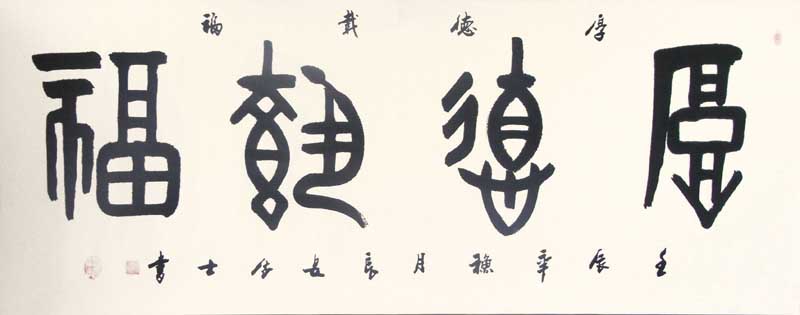 厚德載福
厚德載福
壬辰年穐月良居士書